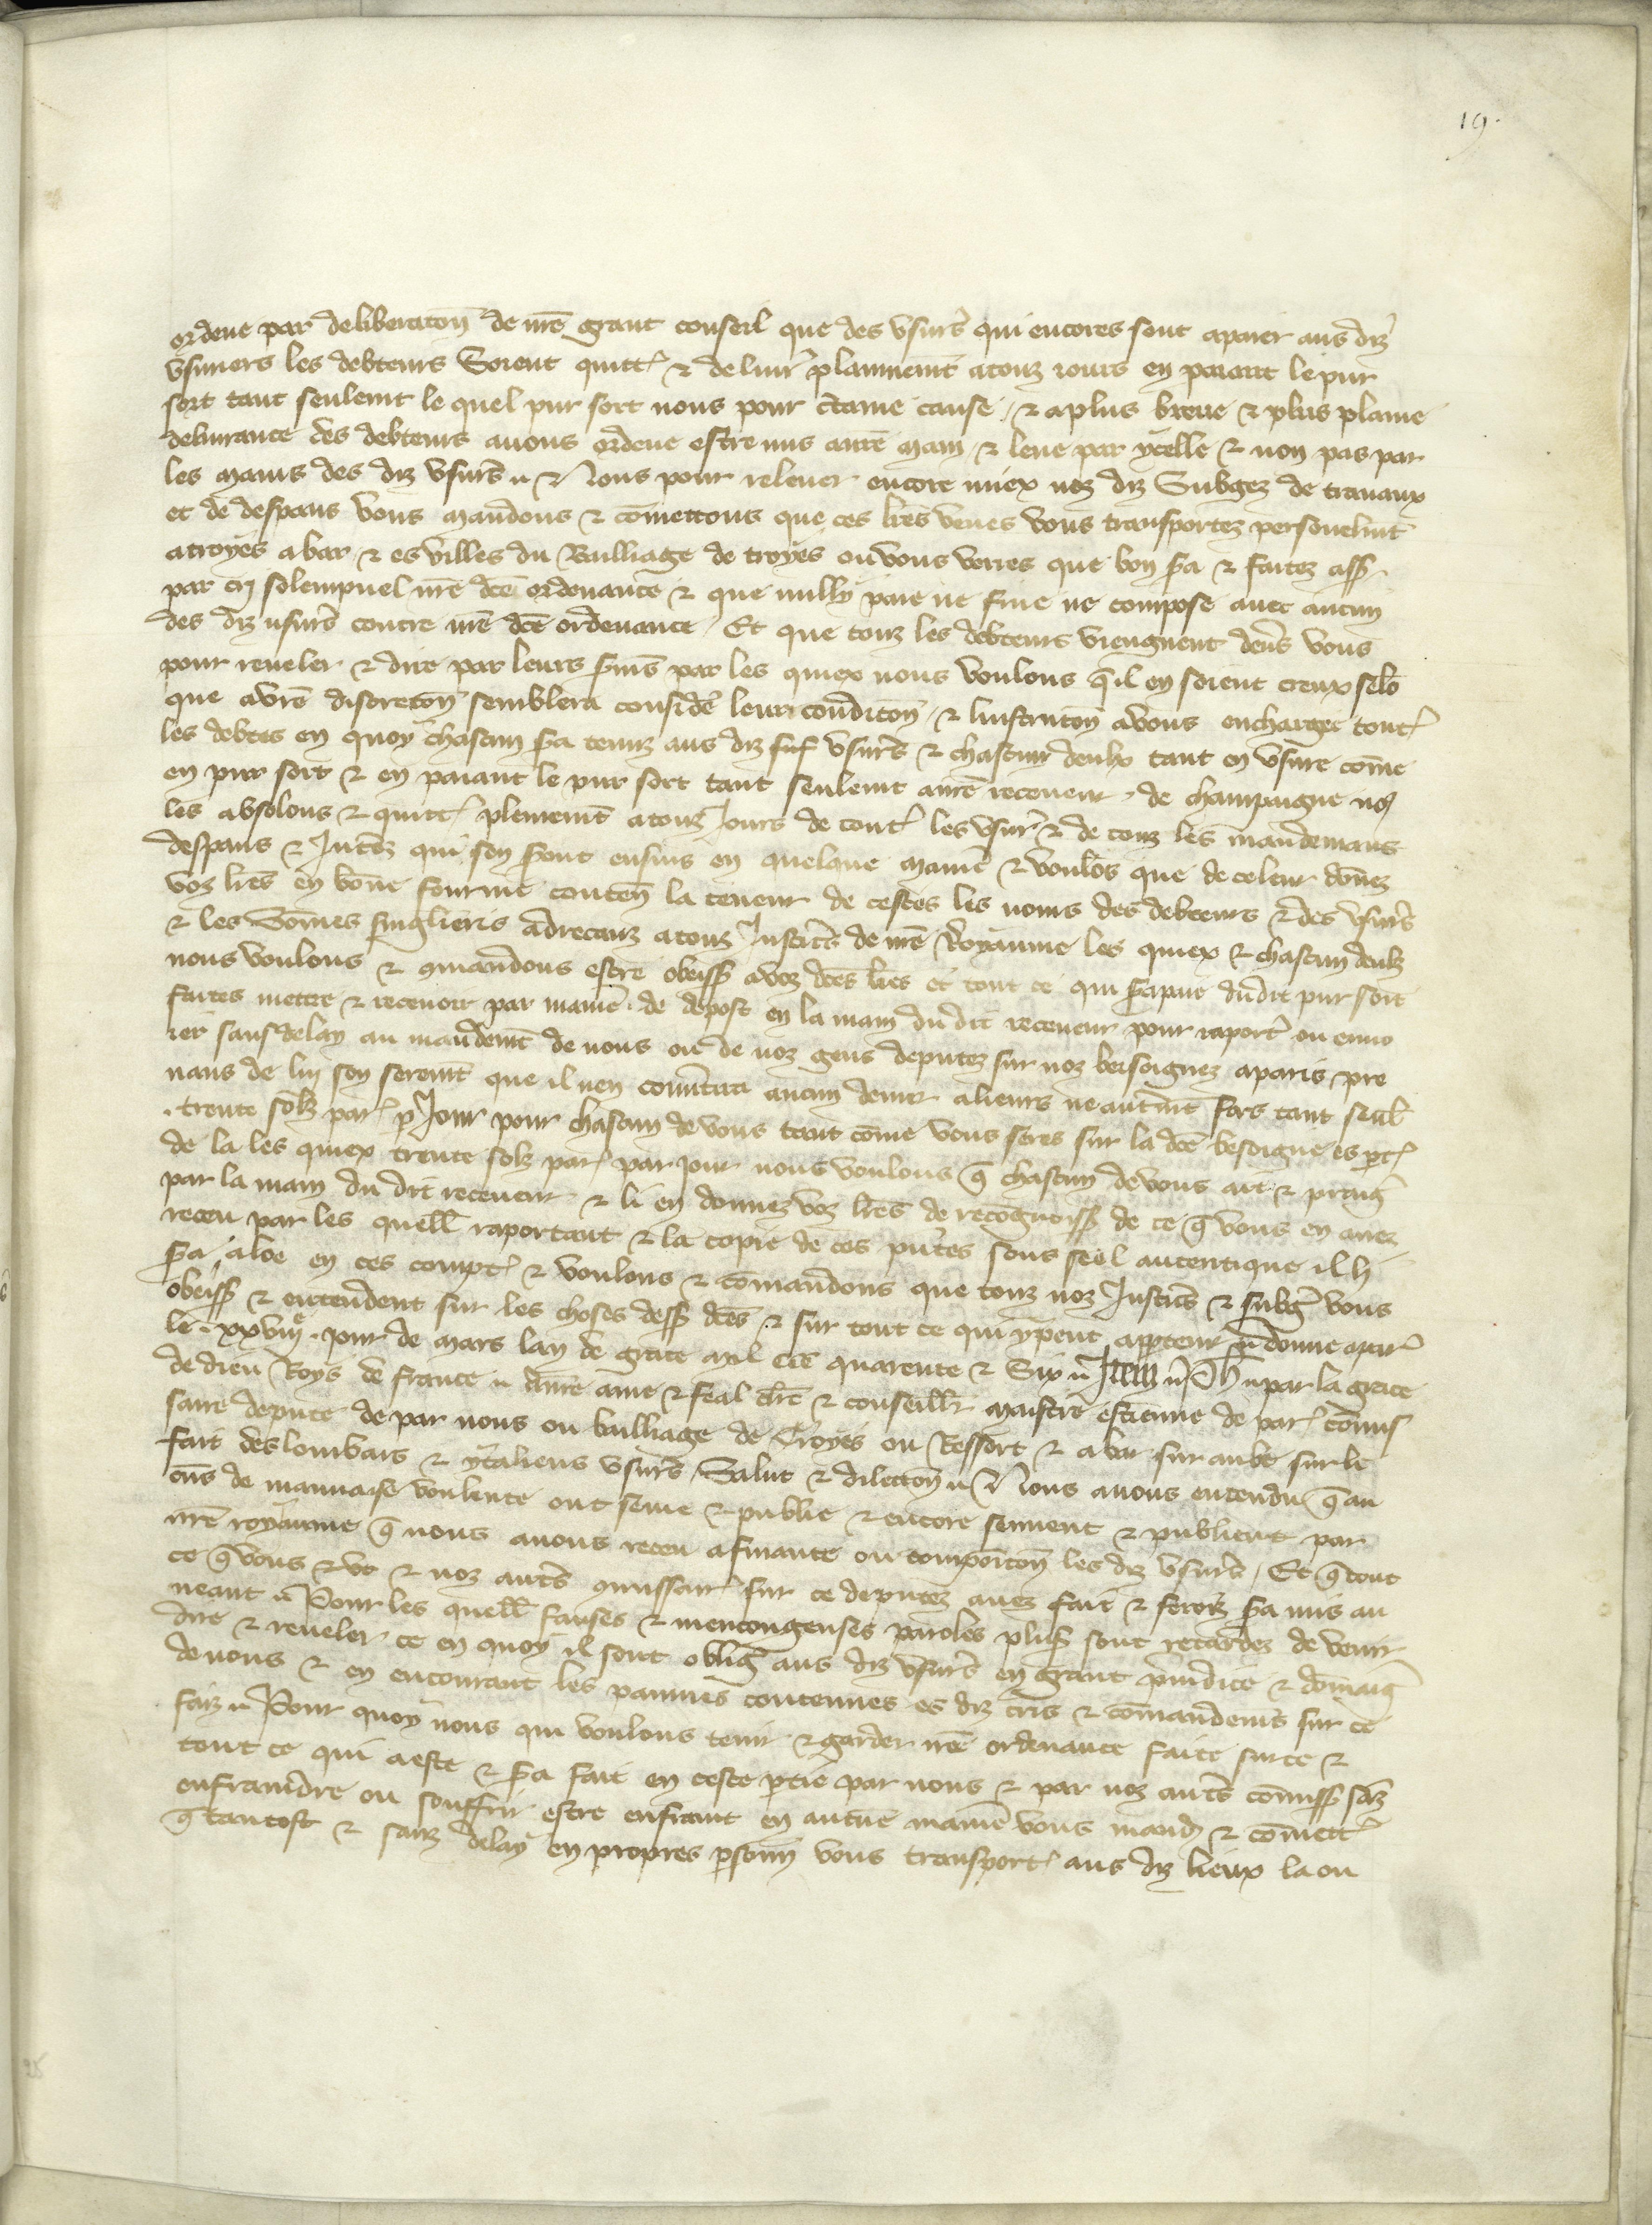 19.
ordene par deliberacon de nre grant conseil que des vsures qui encores sont apaier aus diz
vsuriers les debteurs Soient quitt & deliur plainnemt atouz iours en paiant le pur
sort tant seulemt le quel pur sort nous pour ctaine cause / & aplus breue & plus plaine
deliurance des debteurs auons ordene estre mis anre main & leue par ycelle & non pas par
les mains des diz vsurs & Nous pour releuer encore miex noz diz Subgez de trauaux
et de despans vous mandons & comettons que ces lres veues vous transportez personelmt
atroyes abar & es villes du Bailliage de troyes ou vous verres que bon sera & faitez ass
par cri solempnel nre dce ordenance & que nully paie ne fine ne compose auec aucun
des diz usurs contre nre dce ordenance / Et que touz les debteurs viengnent deuers vous
pour reueler & dire par leurs sermens par les quiex nous voulons qe il en soient creux selo
que avre discrecon semblera conside leur condicon / & linstrucon avous enchargee tout
les debtes en quoy chascun sera tenuz aus diz vsurs & chascun deulx tant en vsure come
en pur sort & en paiant le pur sort tant seulemt anre receueur de champaigne no
les absolons & quitt plenemt atouz Jours de tout les vsur & de touz les mandemans
despans & Intez qui sen sont ensuis en quelque manie & voulos que de celeur donez
voz lres en bone fourme conten la teneur de cestes les noms des debteurs & des vsurs
& les Somes singlieres adrecanz atouz Justices de nre Royaume les quiex & chascun deulz
nous voulons & comandons estre obeiss avoz dces lres et tout ce qui sera paie dudit pur sort
faites mettre & receuoir par manie de depost en la main du dit receueur pour raport ou enuo
ier sans delay au mandemt de nous ou de noz gens deputez sur noz besoignez aparis pre
nans de lui son seremt que il nen conuertira aucun denier alieurs ne autremt fors tant seul
trente solz par p Jour pour chascun de vous tant come vous seres sur la dce besoigne es pt
de la les quiex trente solz par par jour nous voulons q chascun de vous ait & praig
par la main du dit receueur & li en donnez voz lres de recognoiss de ce q vous en auez
receu par les quell raportant & la copie de ces pntes sous seel autentique il li
sera aloe en ces compt & voulons & comandons que touz noz Justices & subg vous
obeiss & entendent sur les choses dess dces & sur tout ce qui ypeut apptenir donne apar
le xxviije jour de mars lan de grace mil ccc quarente & Six Item Ph par la grace
de dieu Roys de france Anre ame & feal clerc & conseill maistre estienne de par comis
saire depute de par nous ou bailliage de Troyes ou Ressort & abar sur aube sur le
fait des lombars & ytaliens vsurs Salut & dilection Nous auons entendu q au
cuns de mauuaise voulente ont seme & publie & encore sement & publient par
nre royaume q nous auons receu afinance ou composicon les diz vsurs / Et q tout
ce q vous & noz autres comissair sur ce deputez auez fait & ferez sera mis au
neant Pour les quell fauses & mencongeuses paroles plus sont retardez de venir
dire & reueler ce en quoy il sont oblig aus diz vsurs en grant preiudice & domaig
de nous & en encourant les painnes contenues es diz cris & comandemens sur ce
faiz Pour quoy nous qui voulons tenir & garder nre ordenance faite sur ce &
tout ce qui a este & sera fait en ceste ptie par nous & par noz autres comiss sanz
enfraindre ou souffrir estre enfraint en aucune manie vous mand & comett
q tantost & sanz delay en propres psonn vous transport aus diz lieux la ou